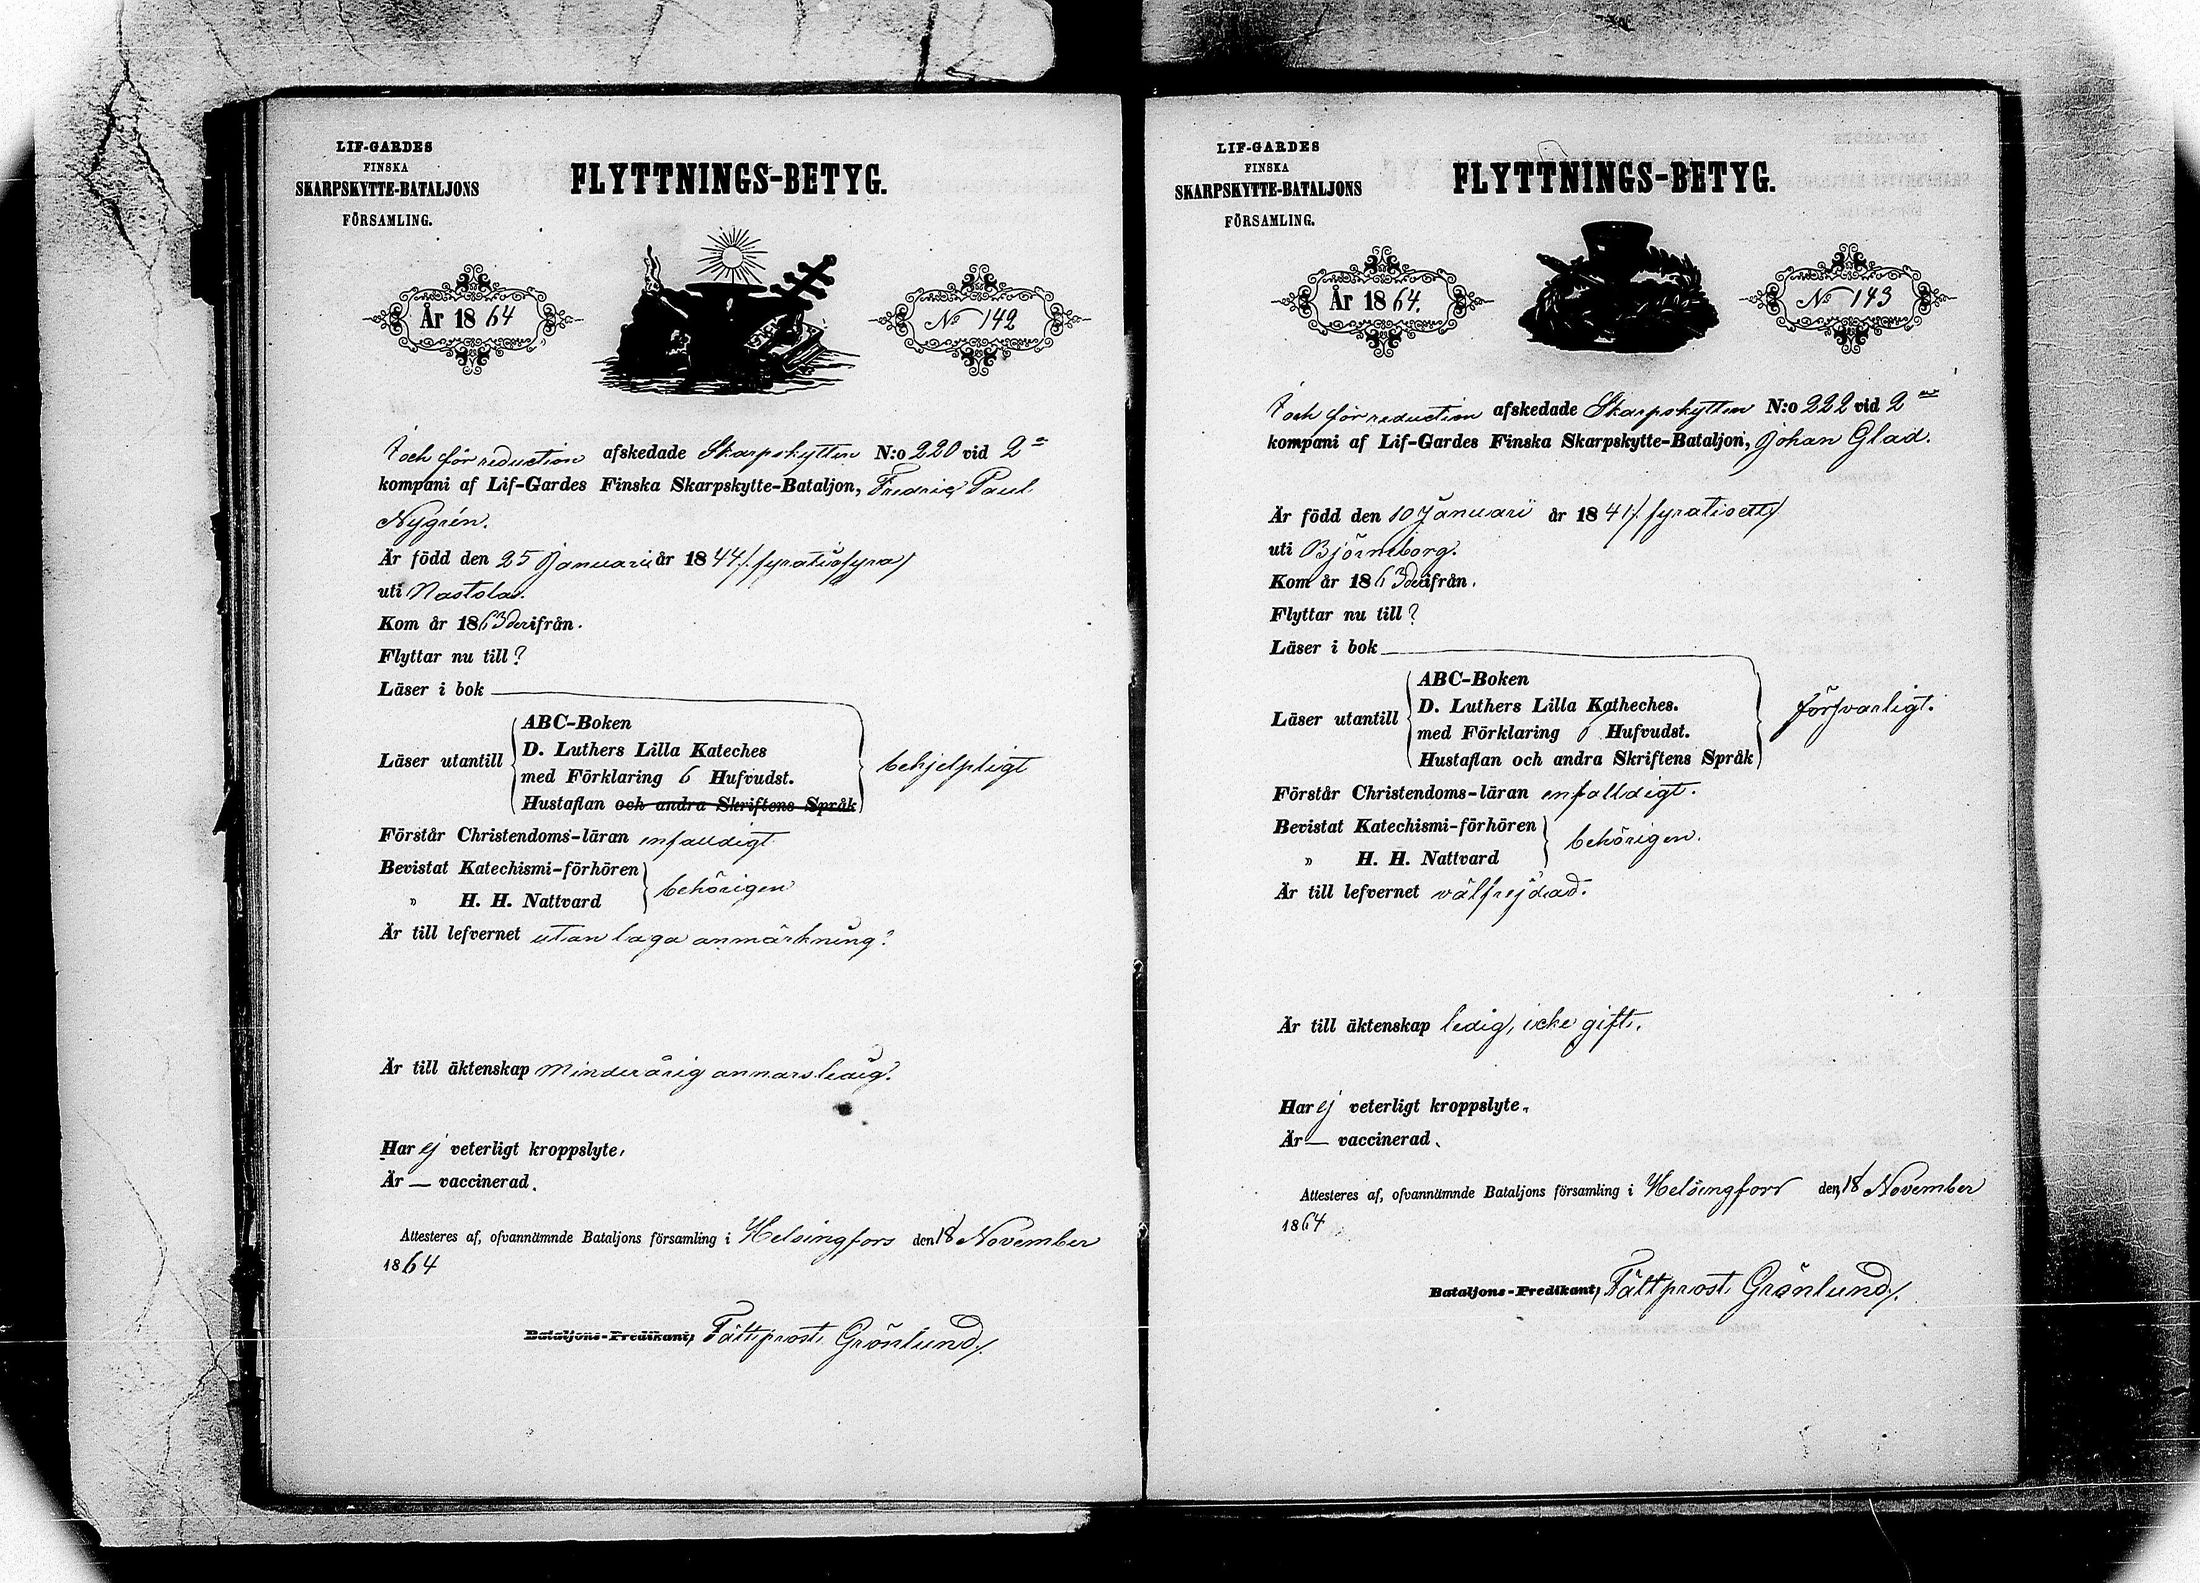 LIF-GARDES
FINSKA
SKARPSKYTTE-BATALJONS
FÖRSAMLING.
FLYTTNINGS-BETYG.
År 1864
No 142
och för reduction afskedade Skarpskytten N:o 220 vid 2
kompani af Lif-Gardes Finska Skarpskytte-Bataljon, Fredric Paul
Nygrén.
Är född den 25 Januari år 1844/. fyratiofyra/
uti Nastola.
Kom år 1863 derifrån.
Flyttar nu till?
Läser i bok
Läser utantill
ABC-Boken
D. Luthers Lilla Kateches
med Förklaring 6 Hufvudst.
Hustaflan och andra Skriftens Språk
behjelpligt
Förstår Christendoms-läran enfalldigt
Bevistat Katechismi-förhören
" H. H. Nattvard
behörigen
Är till lefvernet utan laga anmärkning.
Är till äktenskap minderårig annars ledig.
Har ej veterligt kroppslyte.
Är — vaccinerad.
Attesteres af, ofvannämnde Bataljons församling i Helsingfors den 18 November
1864
Bataljons-Predikant, Fältprost. Grönlund/.
LIF-GARDES
FINSKA
SKARPSKYTTE-BATALJONS
FÖRSAMLING.
FLYTTNINGS-BETYG.
År 1864.
No 143
och för reduction afskedade Skarpskytten N:o 222 vid 2
kompani af Lif-Gardes Finska Skarpskytte-Bataljon, Johan Glad.
Är född den 10 Januari år 1841/. fyratioett/
uti Björneborg.
Kom år 1863 derifrån.
Flyttar nu till?
Läser i bok
Läser utantill
ABC-Boken
D. Luthers Lilla Katheches.
med Förklaring 6 Hufvudst.
Hustaflan och andra Skriftens Språk
försvarligt.
Förstår Christendoms-läran enfalldigt.
Bevistat Katechismi-förhören
" H. H. Nattvard
behörigen.
Är till lefvernet välfrejdad.
Är till äktenskap ledig, icke gift.
Har ej veterligt kroppslyte.
Är — vaccinerad.
Attesteres af, ofvannämnde Bataljons församling i Helsingfors den 18 November
1864
Bataljons-Predikant, Fältprost. Grönlund/.